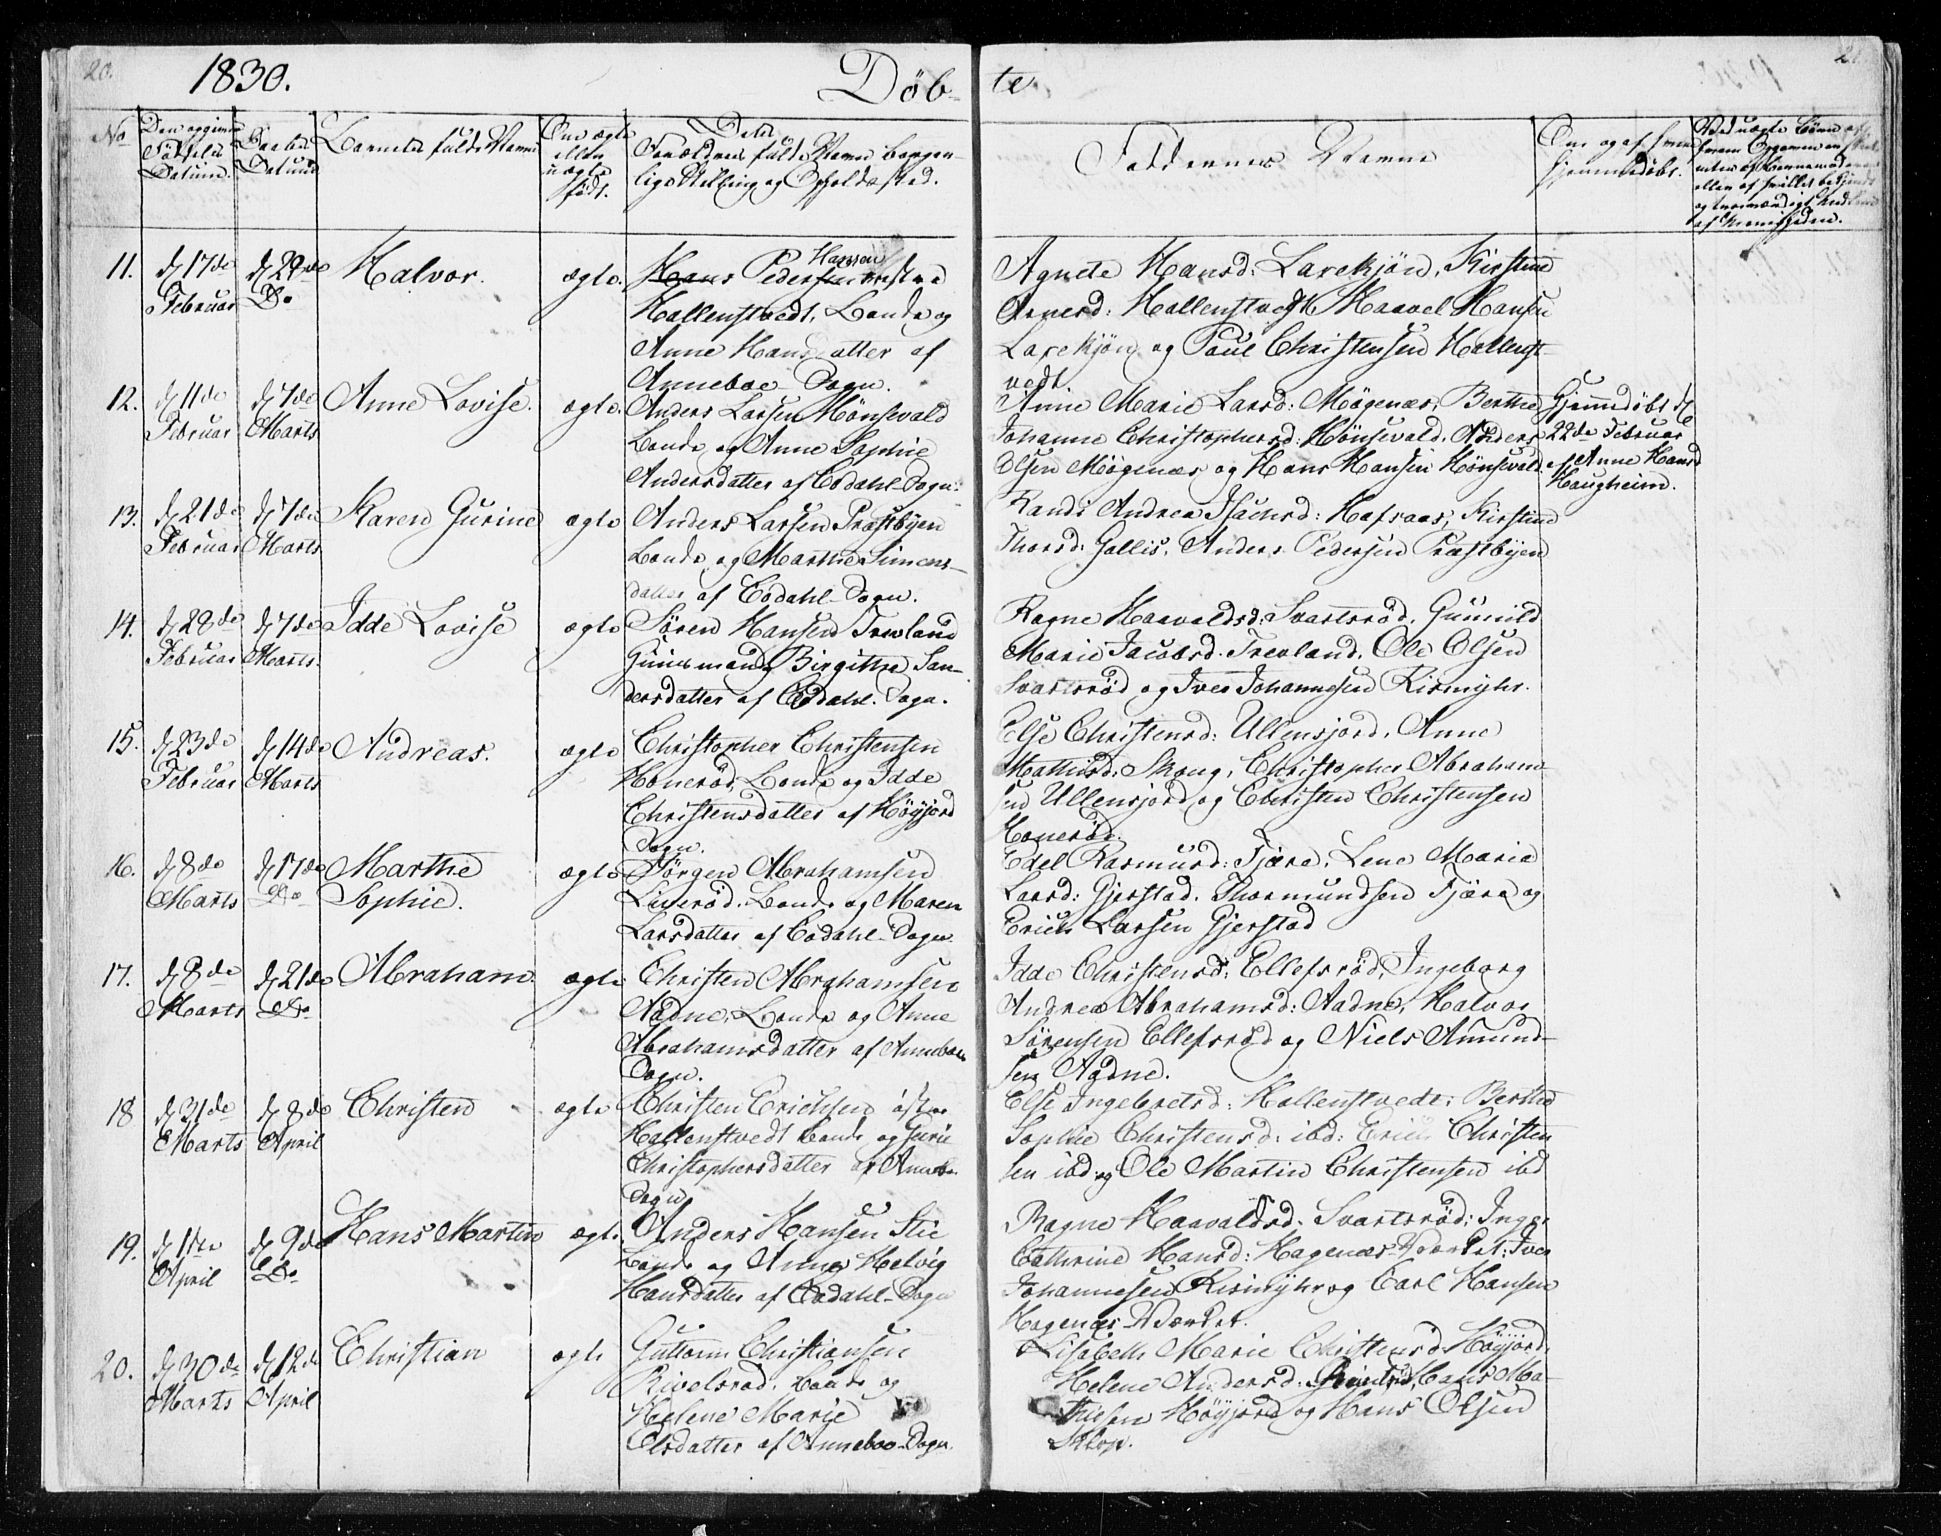 20.
1830.
Døb-
te
21
No
Den opgivne
Fødsels
Datum.
Daabs
Datum
Barnets fulde Navn
Om ægte
eller
uægte
født.
Forældrenes fulde Navn borger-
lig Stilling og Opholdssted.
Faddernes Navne
Om og af hvem
hjemmedøbt.
11.
d 17de
Februar
d 29de
Do
Halvor.
ægte.
Hansen
Hans Peder
Hallenstvedt, Bonde og
Anne Hansdatter af
Anneboe Sogn.
Agnete Hansd: Laxekjøn, Kirstine
Hallenstvedt Haavel Hansen
Laxekjøn og Poul Christensen Hallenst
vedt
12.
d 11de
Februar
d 7de
Marts
Anne Lovise.
ægte.
Anders Larsen Hönsevald
Bonde og Anne Sophie
Andersdatter af Codahl-Sogn.
Anne Marie Larsd: Møgenæs, Berthe
Johanne Christophersd: Hönsevald, Anders
Olsen Møgenæs og Hans Hansen Hönsevald.
Hjemmedøbt d
22de Februar
af Anne Hansd
Haugheim.
13.
d 21de
Februar
d 7de
Marts
Karen Gurine
ægte
Anders Larsen Præstbyen
Bonde og Marthe Simens-
datter af Codahl-Sogn.
Randi Andrea Isachsd: Hafsaas, Kirstine
Thorsd: Gallis, Anders Pedersen Præstbyen
14.
d 28de
Februar
d 7de
Marts.
Idde Lovise
ægte
Sören Hansen Trevland
Huusmand Birgitha San-
dersdatter af Codahl-Sogn.
Ragne Haavaldsd: Svartsrød, Gunnild
Marie Jacobsd. Trevland, Ole Olsen
Svartsrød og Iver Johannesen Rismyhr.
15.
d 23de
Februar
d 14de
Marts
Andreas.
ægte
Christopher Christensen
Honerød, Bonde og Idde
Christensdatter af Høyjord
Sogn.
Else Christensd: Ullensjord, Anne
Mathisd: Skoug, Christopher Abraham-
sen Ullensjord og Christen Christensen
Honerød.
16.
d 8de
Marts
d 17de
Do
Marthe
Sophie.
ægte
Jørgen Abrahamsen
Linerød. Bonde og Maren
Larsdatter af Codahl-Sogn
Edel Rasmusd: Fjære, Lene Maria
Larsd: Gjerstad. Thormundsen Fjære og
Erich Larsen Gjerstad
17.
d 8de
Marts
d 21de
Do
Abraham
ægte
Christen Abrahamsen
Aadne, Bonde og Anne
Abrahamsdatter af Anneboe
Sogn.
Idde Christensd: Ellefsrød, Ingeborg
Andrea Abrahamsd: Aadne, Halvor
Sörensen Ellefsrød og Niels Amund-
sen Aadne.
18
d 31de
Marts
d 8de
April
Christen
ægte
Christen Erichsen østre
Hallenstvedt Bonde og Gurie
Christophersdatter af Anneboe
Sogn
Else Ingebretsd: Hallenstvedt, Berthe
Sophie Christensd: ibd: Erich Christen
sen ibd: og Ole Martin Christensen ibd
19.
d 1ste
April
d 9de
Do
Hans Martin
ægte
Anders Hansen Stie
Bonde og Anne Helvig
Hansdatter af Codahl-Sogn
Ragne Haavaldsd. Svartsrød: Inge
Cathrine Hansd: Hagenæs Værket: Iver
Johannesen Rismyhr og Carl Hansen
Hagenæs Værket.
20.
d 30de
Marts
d 12de
April
Christian
ægte
Guttorm Christiansen
Rivelsrød. Bonde og
Helene Marie
Elsdatter af Anneboe-Sogn.
Lisabeth Marie Christensd. Høyjord,
Helene Andersd: Hans Ma-
thiesen Høyjord og Hans Olsen
Klop.